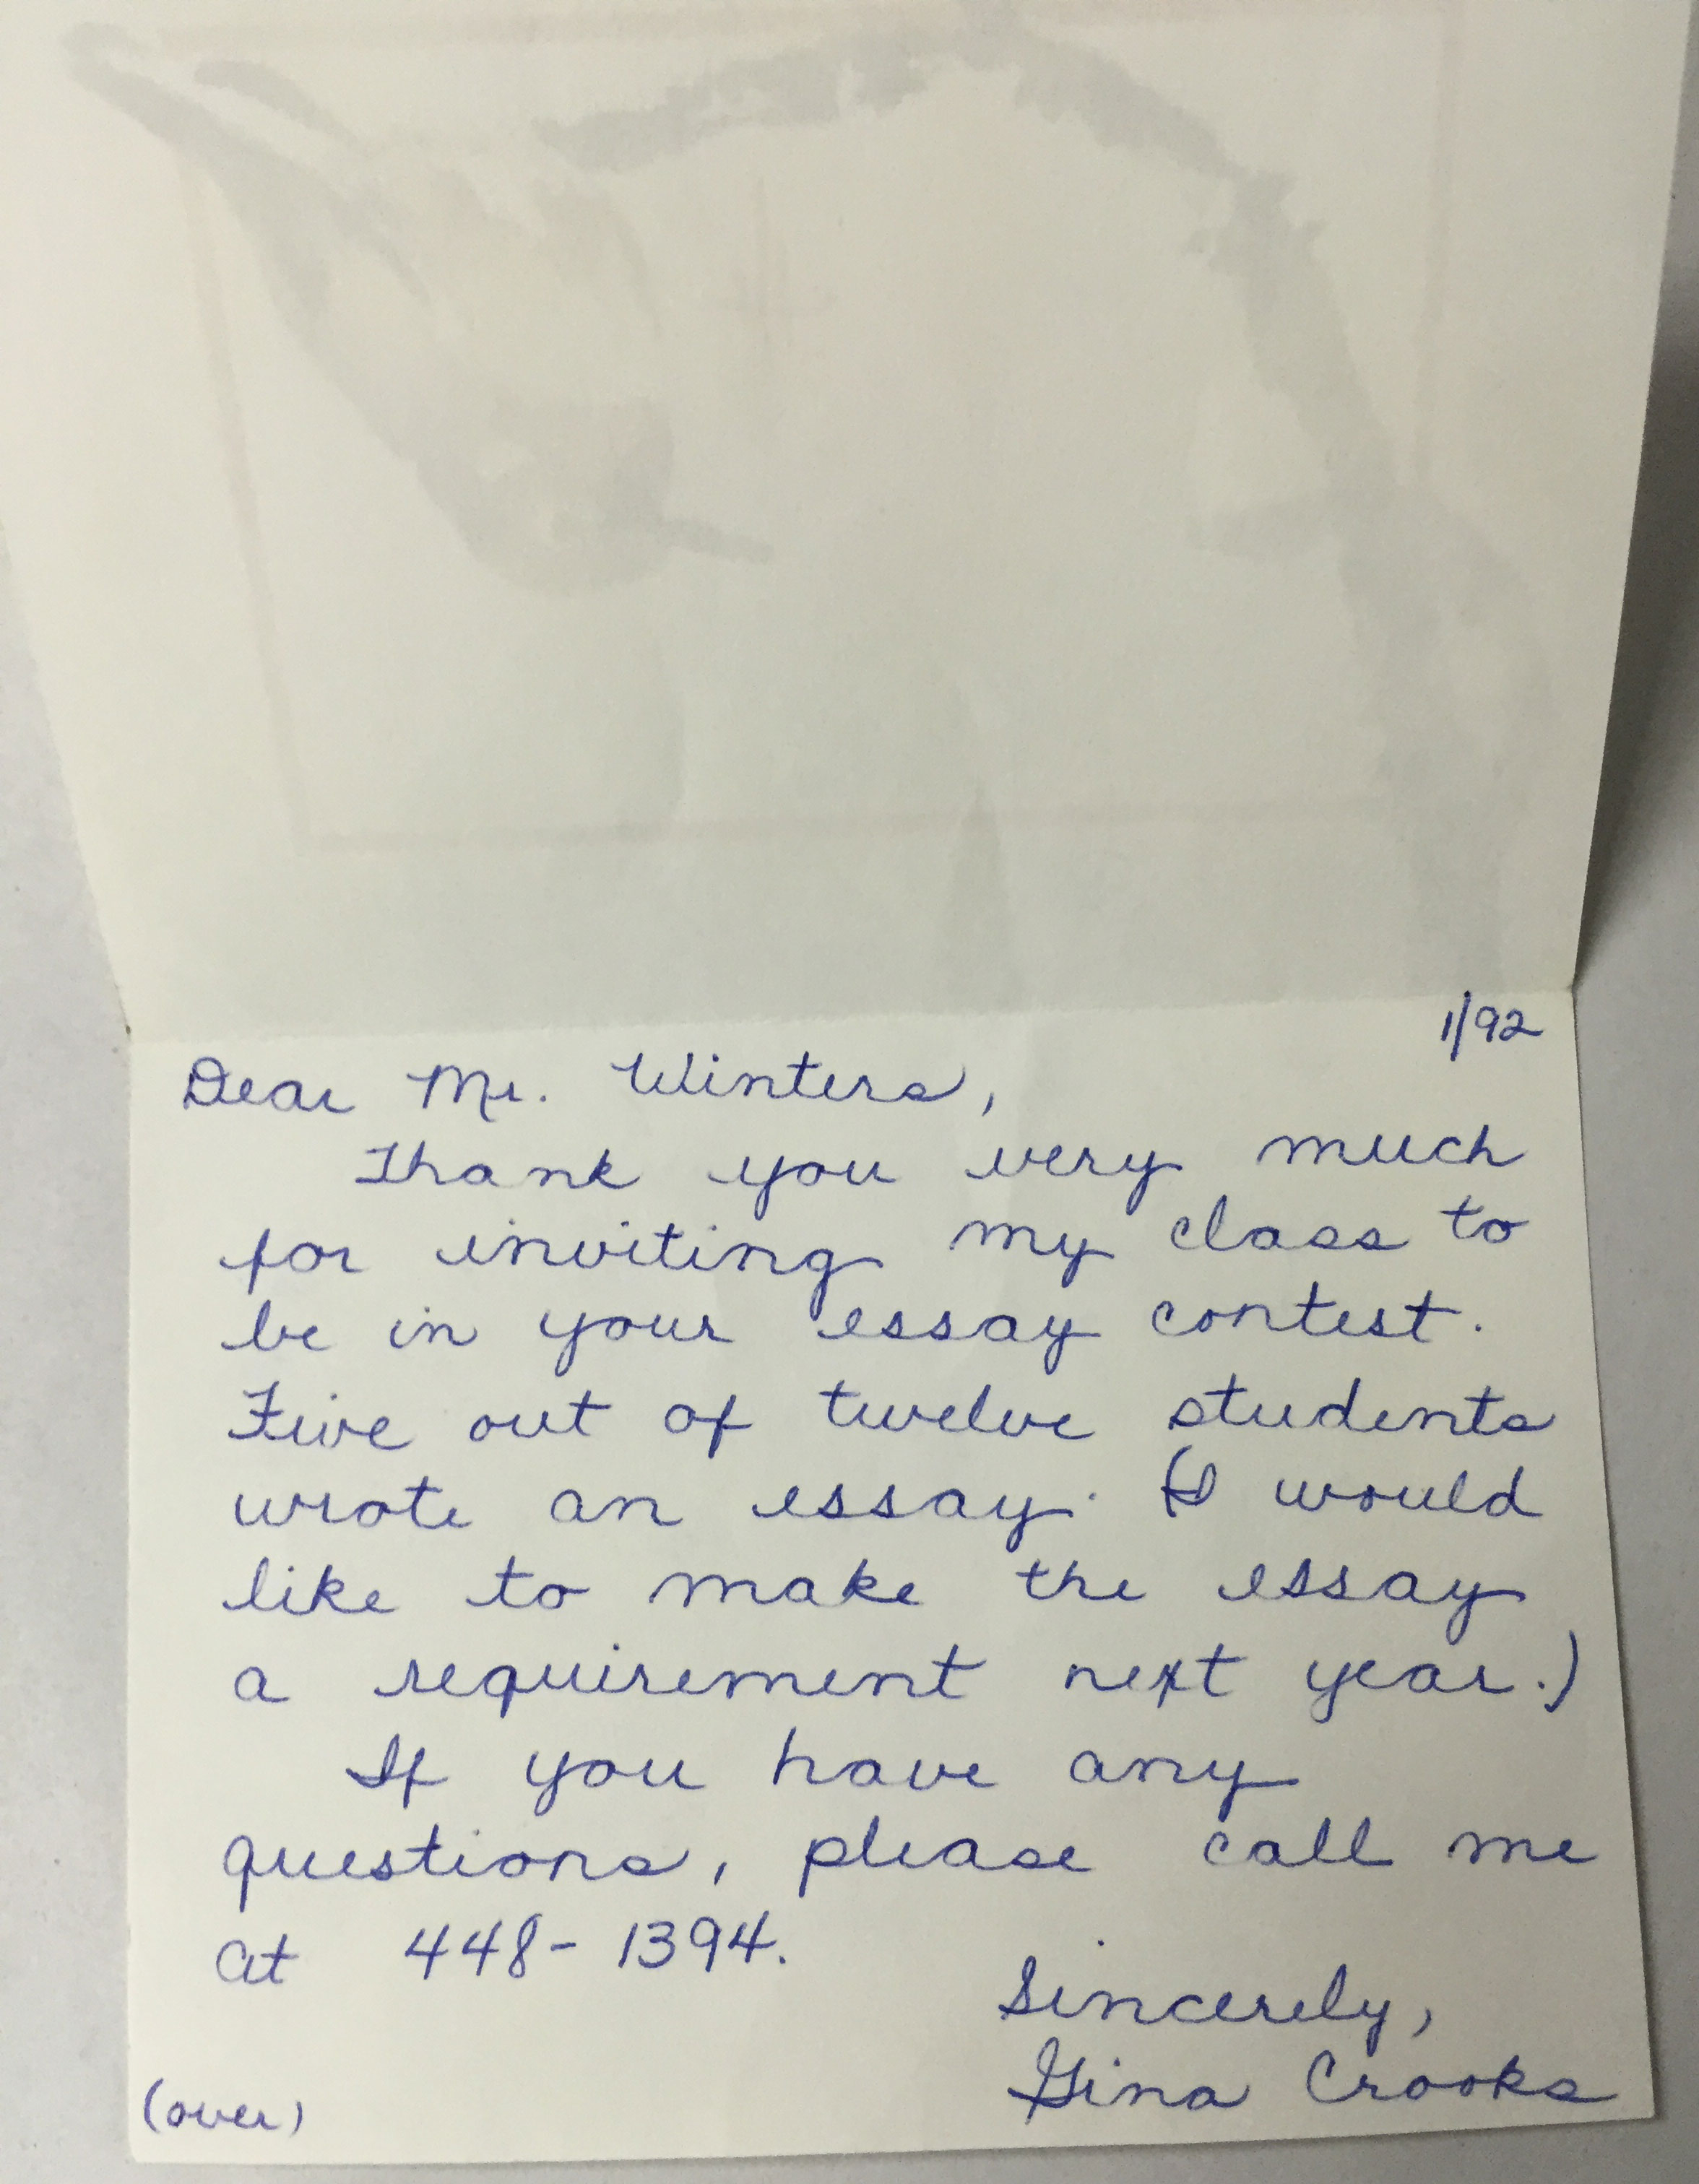 1/92
Dear Mr. Winters,
Thank you very much
for inviting my class to
be in your essay contest.
Five out of twelve students
wrote an essay. (I would
like to make the essay
a requirement next year.)
If you have any
questions, please call me
at 448-1394.
Sincerely,
Gina Crooks
(over)